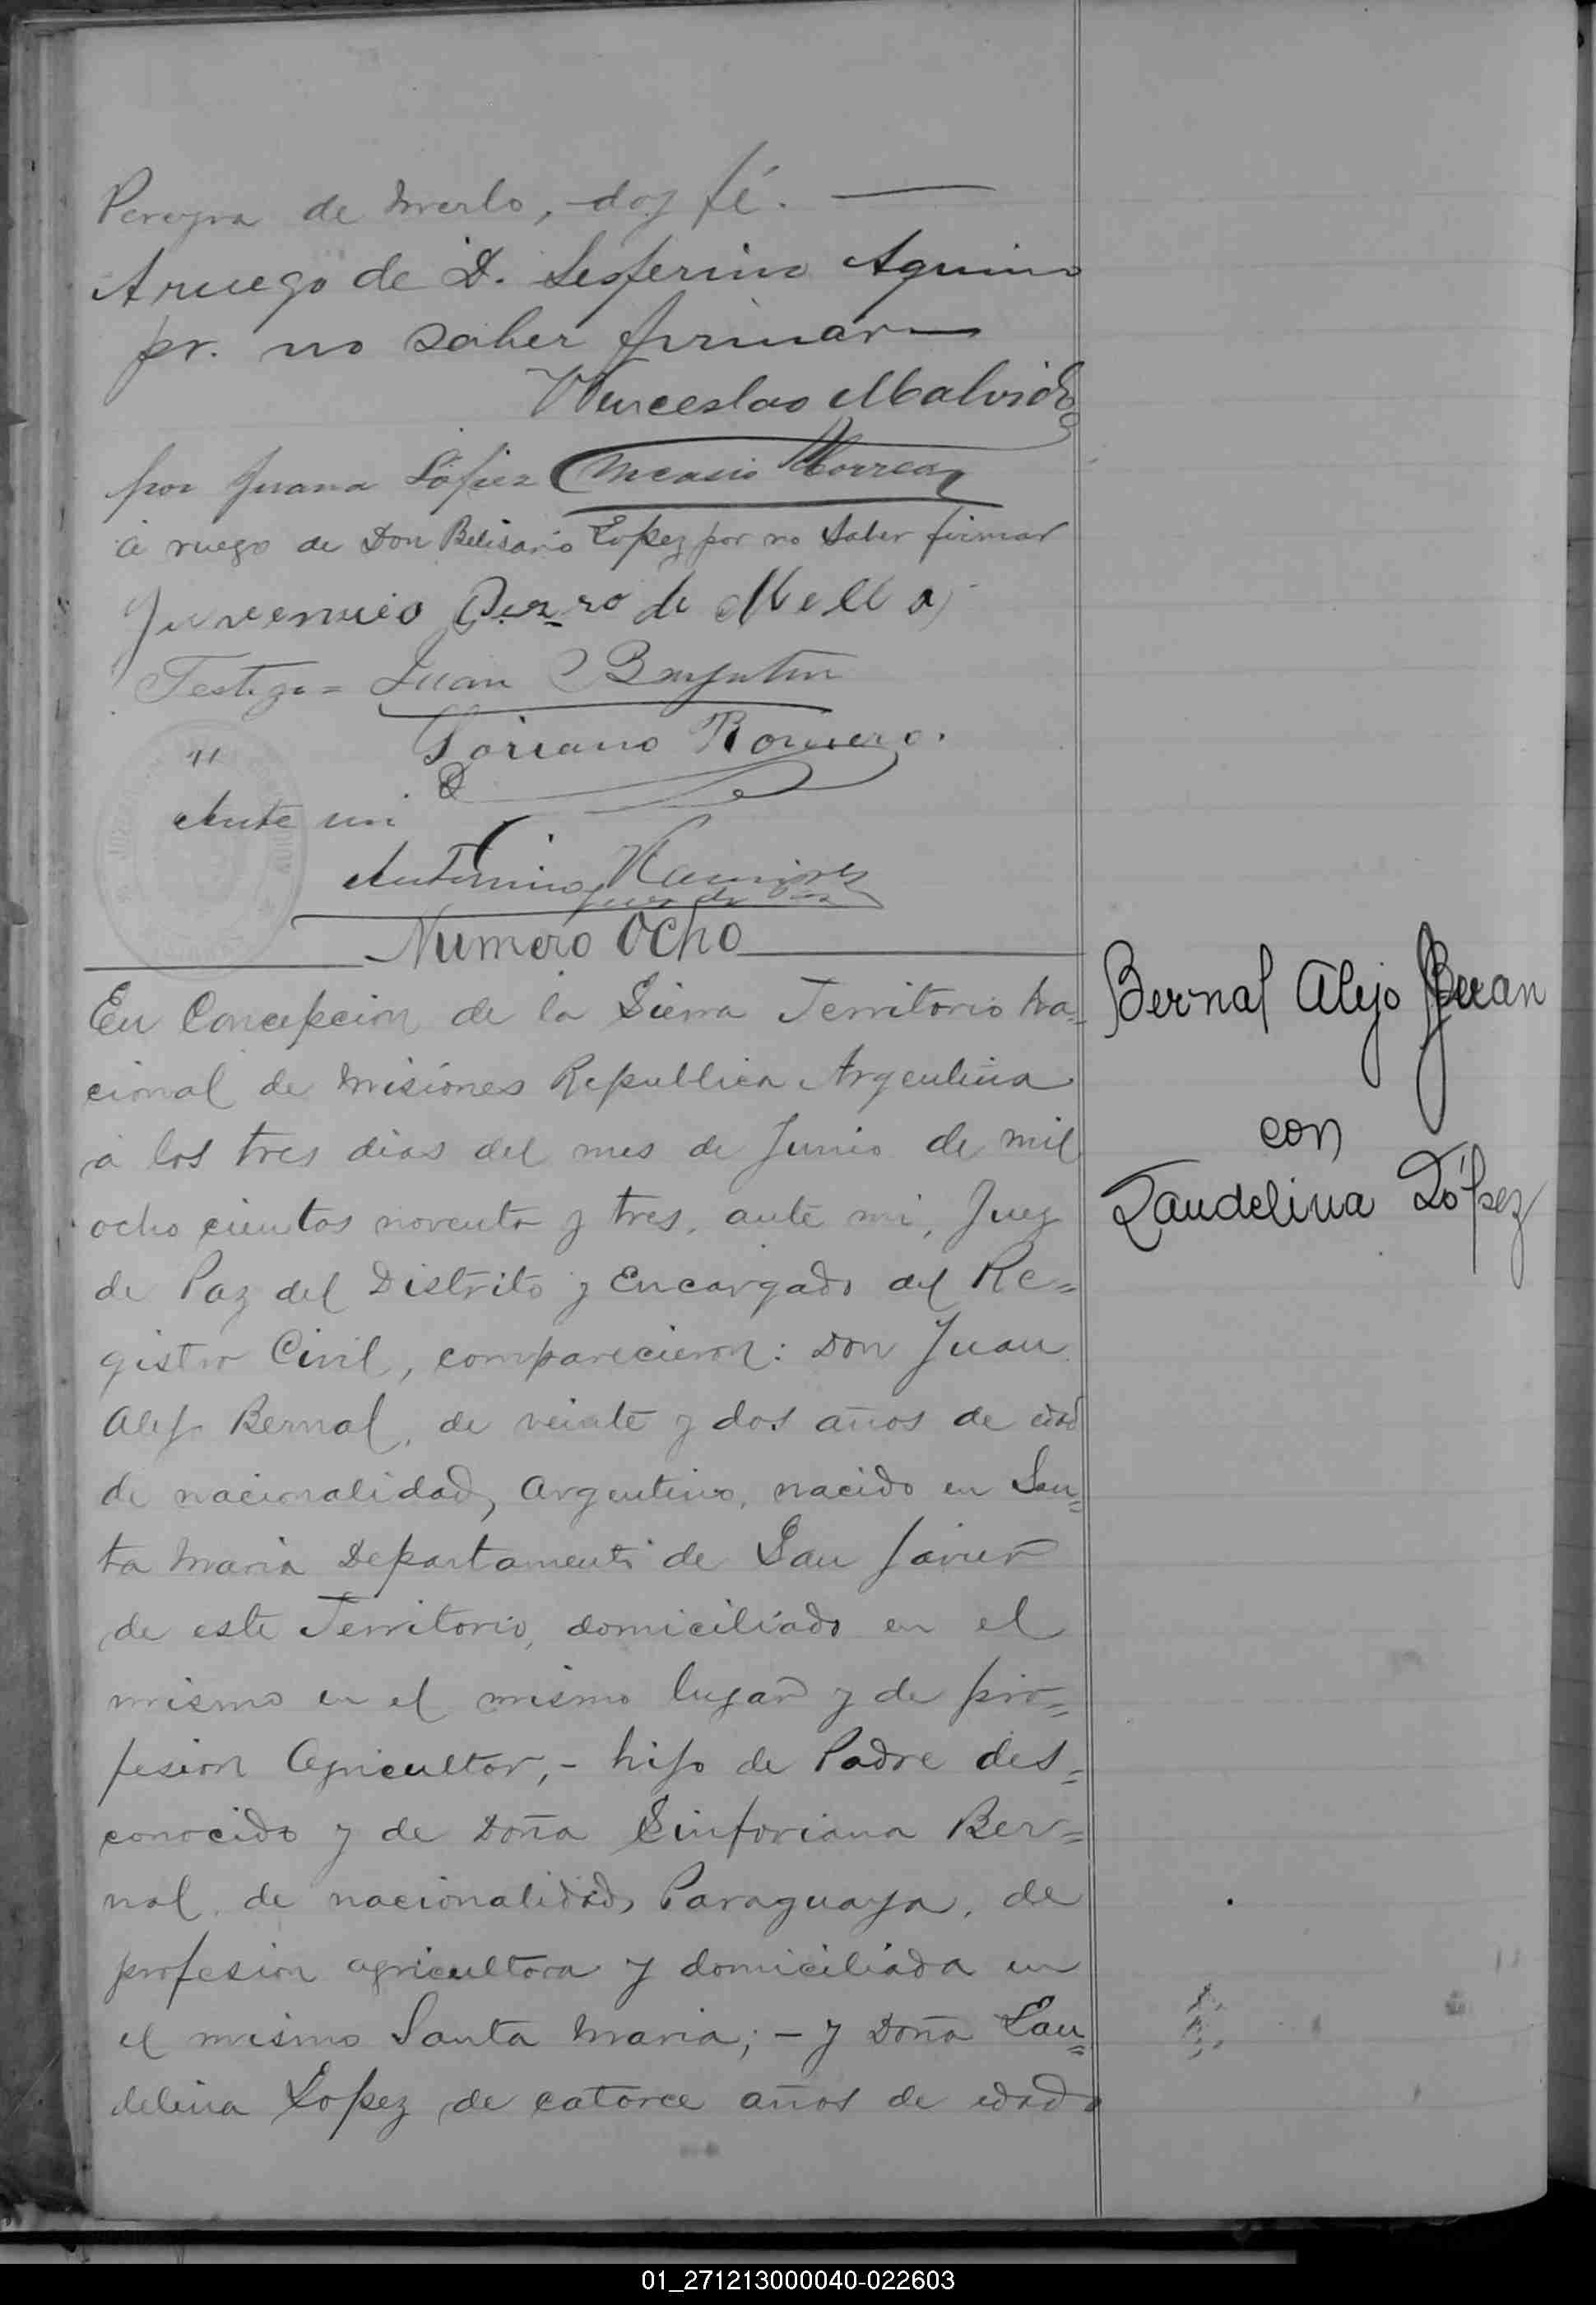 Pereyra de Merlo, - doy fé.
A ruego de D. Sesferino Aquino
pr. no saber firmar
Wenceslao Malvido
por Juana López
á ruego de Don Belisario Lopez por no saber firmar
de Mello
Testigo = Juan
" Soriano Romero.
Ante mi
Antonino Ramirez
Juez de Paz
Numero Ocho
En Concepcion de la Sierra Territorio Na=
cional de Misiones Republica Argentina
á los tres dias del mes de Junio de mil
ocho cientos noventa y tres, ante mi, Juez
de Paz del Distrito y Encargado del Re=
gistro Civil, comparecieron: Don Juan
Alejo Bernal, de veinte y dos años de edad
de nacionalidad, Argentino, nacido en San=
ta Maria Departamento de San Javier
de este Territorio, domiciliado en el
mismo en el mismo lugar y de pro=
fesion Agricultor, - hijo de Padre des=
conocido y de Doña Sinforiana Ber=
nal, de nacionalidad, Paraguaya, de
profesion agricultora y domiciliada en
el mismo Santa Maria; - y Doña Lau=
delina Lopez de catorce años de edad
Bernal Alejo Juan
con
Laudelina López
01_271213000040-022603